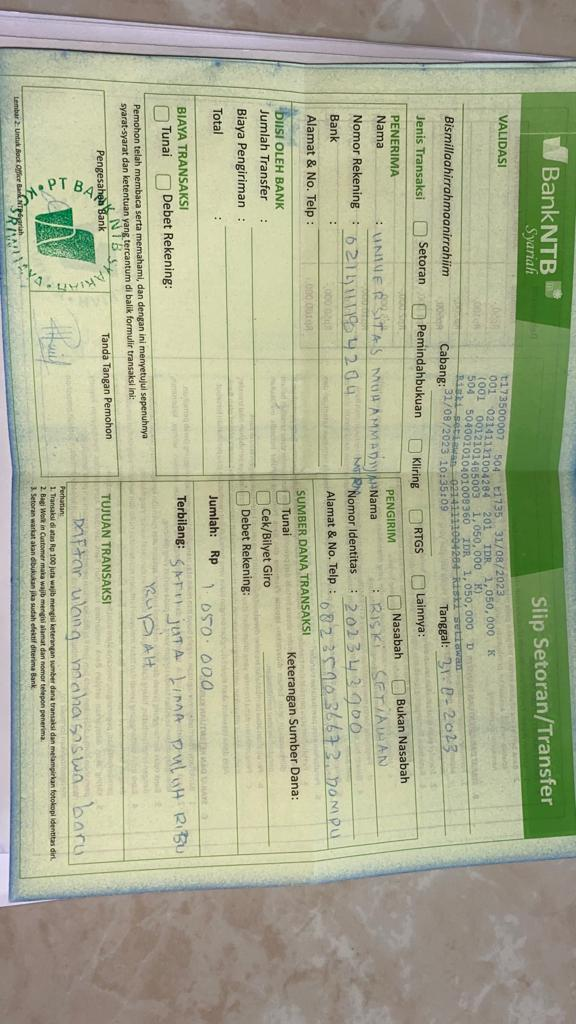 BankNTB
Syariah
Slip Setoran/Transfer
VALIDASI
t173500007 504 t1735 31/08/2023
001 0214111004284 201 IDR 1,050,000 K
(001 0013101485003 1,050,000 K)
504 504001010401008360 IDR 1,050,000 D
Riski setiawan 0214111004284 Riski setiawan
31/08/2023 10:35:09
Bismillaahirrahmaanirrahiim
Cabang:
Tanggal: 31-8-2023
Jenis Transaksi
Setoran
Pemindahbukuan
Kliring
RTGS
Lainnya:
PENERIMA
Nama : UNIVERSITAS MUHAMMADIYAH
Nomor Rekening :
Bank :
Alamat & No. Telp :
PENGIRIM
Nasabah
Bukan Nasabah
Nama : RISKI SETIAWAN
Nomor Identitas : 202342900
Alamat & No. Telp : 082359036673. DOMPU
DIISI OLEH BANK
Jumlah Transfer :
Biaya Pengiriman :
Total :
SUMBER DANA TRANSAKSI
Tunai
Cek/Bilyet Giro
Debet Rekening:
Keterangan Sumber Dana:
Jumlah: Rp 1 050.000
Terbilang: SATU JUTA LIMA PULUH RIBU
RUPIAH
BIAYA TRANSAKSI
Tunai
Debet Rekening:
Pemohon telah membaca serta memahami, dan dengan ini menyetujui sepenuhnya
syarat-syarat dan ketentuan yang tercantum di balik formulir transaksi ini:
Pengesahan Bank
Tanda Tangan Pemohon
PT BANK NTB SYARIAH
TUJUAN TRANSAKSI
Daftar ulang mahasiswa baru
Perhatian:
1. Transaksi di atas Rp 100 juta wajib mengisi keterangan sumber dana transaksi dan melampirkan fotokopi identitas diri.
2. Bagi Walk in Customer maka wajib mengisi alamat dan nomor telepon penerima.
3. Setoran warkat akan dibukukan jika sudah efektif diterima Bank.
Lembar 2: Untuk Back Office Bank NTB Syariah